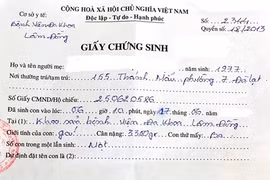 Cơ sở y tế: CỘNG HÒA XÃ HỘI CHỦ NGHĨA VIỆT NAM Số: 2344
Bệnh viện Đa Khoa Độc lập - Tự do - Hạnh phúc Quyển số: 18/2013
Lâm Đồng
GIẤY CHỨNG SINH
Họ và tên người mẹ: năm sinh: 1977
Nơi thường trú/tạm trú: 155 Thánh Mẫu phường 7 Đà Lạt
Số CMND/Hộ chiếu: 250620586
Đã sinh con vào lúc: 06 giờ 10 phút, ngày 17 tháng 08 năm
Tại: Khoa sản bệnh viện Đa Khoa Lâm Đồng
Giới tính của con: gái Cân nặng: 3300gr Con thứ mấy: Ba
Số con trong một lần sinh: Một
Dự định đặt tên con là